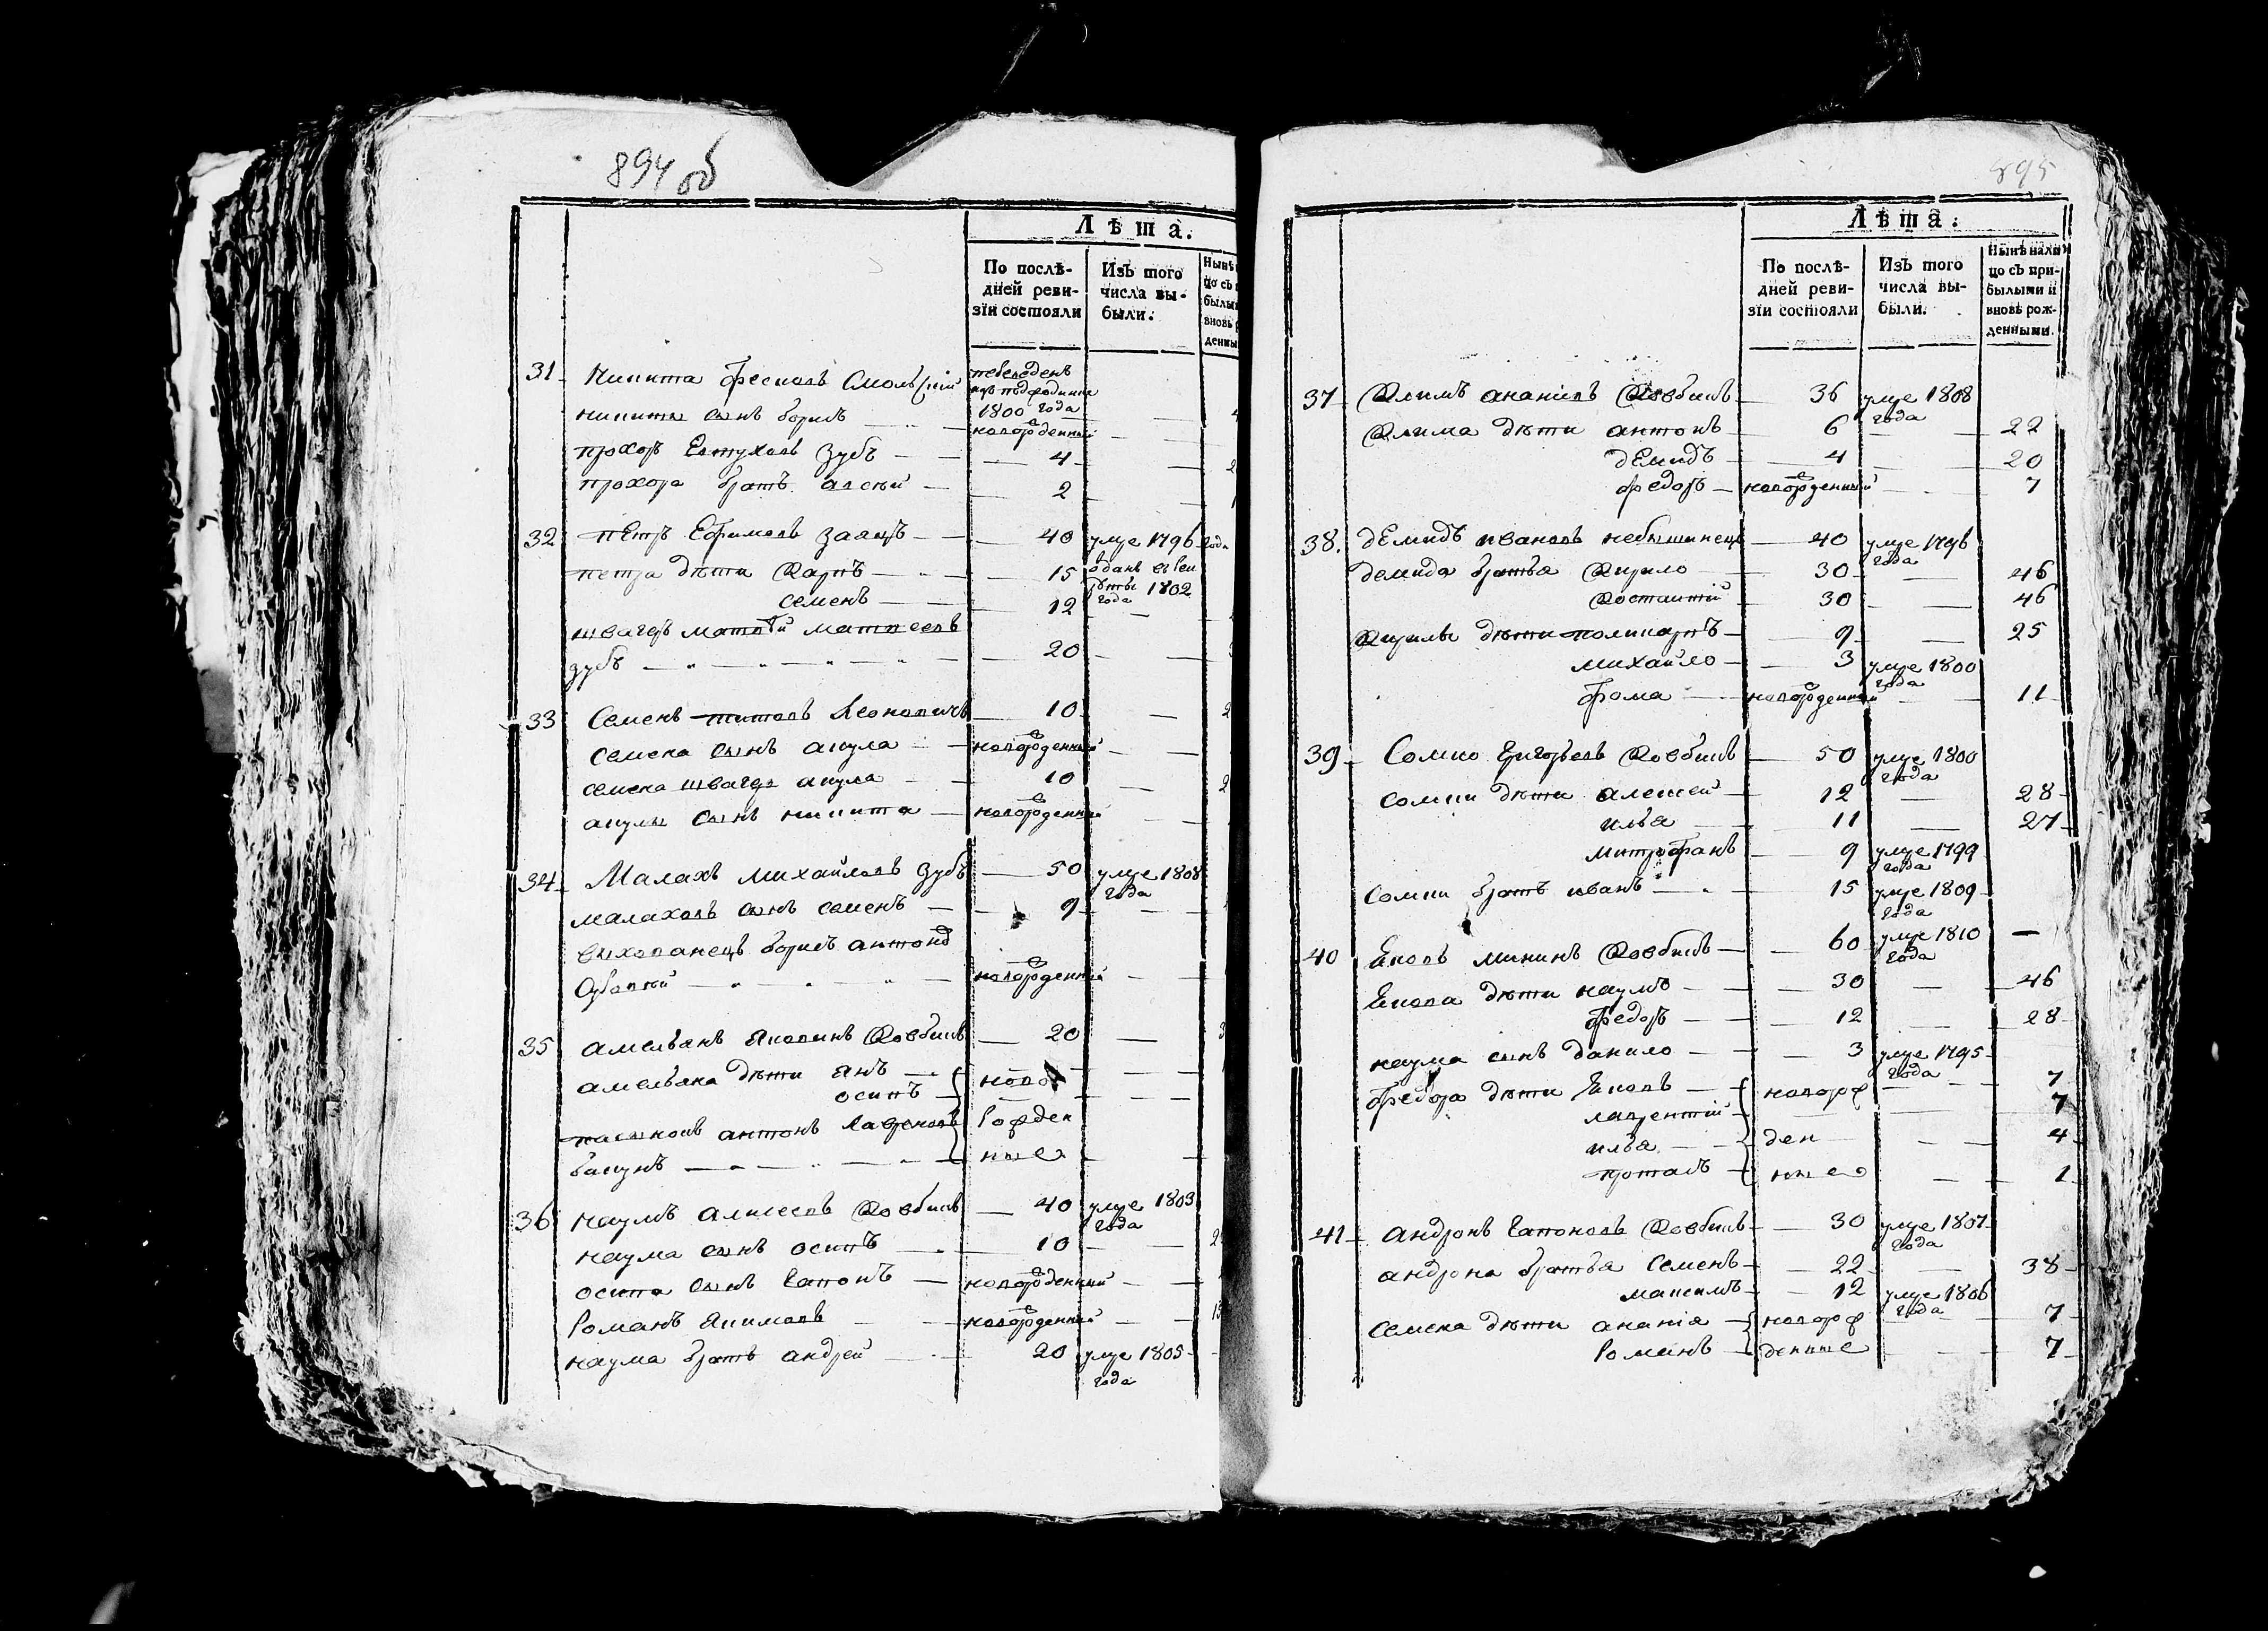 894 об
Лѣта.
По послѣ-
дней реви-
зіи состояли
Изъ того
числа вы-
были.
31 Никита Фесковъ Смольскій переведенъ
1800 года
никиты сынъ борисъ — новорожденный —
прохоръ Евтуховъ Зубъ — 4 —
прохора братъ алсеѣй — 2 —
32 петръ Ефимовъ заяцъ — 40 умре 1796 года
петра дѣти Карпъ — 15 отданъ въ рекруты 1802 года
семенъ — 12 —
швагеръ матвѣй матвеевъ
зубъ — 20 —
33 Семенъ титовъ Леоновичъ — 10 —
семена сынъ акула — новорожденный —
семена швагеръ акула — 10 —
акулы сынъ никита — новорожденный —
34 Малахъ михайловъ зубъ — 50 умре 1808 года
малаховъ сынъ семенъ — 9 —
выхованецъ борисъ антоновъ
— новорожденный —
35 амельянъ Яковинъ Ковбикъ — 20 —
амельяна дѣти янъ — ново —
осипъ — —
пасынокъ антонъ Лавреновъ рожден
бакунъ — ные —
36 наумъ алисеевъ Ковбикъ — 40 умре 1803 года
наума сынъ осипъ — 10 —
осипа сынъ Гапонъ — новорожденный —
Романъ Якимовъ — новорожденный —
наума братъ андрей — 20 умре 1805 года
895
Лѣта.
По послѣ-
дней реви-
зіи состояли
Изъ того
числа вы-
были.
Нынѣ нали
цо съ при-
былыми и
вновь рож-
денными.
37 Климъ ананіевъ Ковбикъ — 36 умре 1808 года
Клима дѣти антонъ — 6 — 22
демидъ — 4 — 20
федоръ — новорожденный — 7
38. демидъ ивановъ небышинецъ — 40 умре 1796 года
демида братья Кирило — 30 — 46
Костантій — 30 — 46
Кирилы дѣти поликарпъ — 9 — 25
михайло — 3 умре 1800 года
фома — новорожденный — 11
39 Сомко Григорьевъ Ковбикъ — 50 умре 1800 года
сомки дѣти алексей — 12 — 28
илья — 11 — 27
митрофанъ — 9 умре 1799 года
Сомки братъ иванъ — 15 умре 1809 года
40 Яковъ мининъ Ковбикъ — 60 умре 1810 года —
Якова дѣти наумъ — 30 — 46
федоръ — 12 — 28
наума сынъ данило — 3 умре 1795 года
федора дѣти Яковъ — новорож — 7
лаврентій — — 7
илья — ден — 4
проташъ — ные — 1
41 андронъ Гапоновъ Ковбикъ — 30 умре 1807 года
андрона братья Семенъ — 22 — 38
максимъ — 12 умре 1806 года
семена дѣти ананія — новорож — 7
Романъ — денные — 7